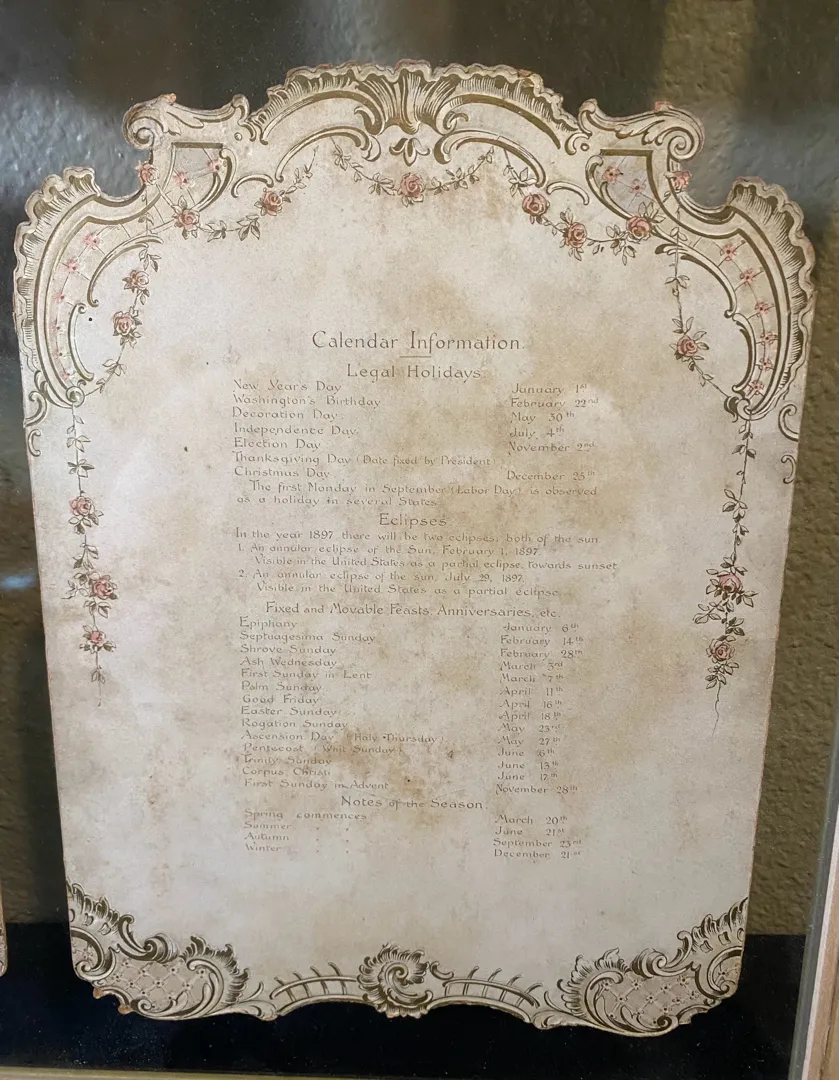 Calendar Information.
Legal Holidays.
New Year's Day January 1st
Washington's Birthday February 22nd
Decoration Day. May 30th
Independence Day. July 4th
Election Day November 2nd
Thanksgiving Day (Date fixed by President)
Christmas Day December 25th
The first Monday in September (Labor Day) is observed
as a holiday in several States.
Eclipses
In the year 1897 there will be two eclipses, both of the sun
1. An annular eclipse of the Sun, February 1, 1897
Visible in the United States as a partial eclipse, towards sunset
2. An annular eclipse of the sun, July 29, 1897.
Visible in the United States as a partial eclipse
Fixed and Movable Feasts, Anniversaries, etc.
Epiphany January 6th
Septuagesima Sunday February 14th
Shrove Sunday February 28th
Ash Wednesday March 3rd
First Sunday in Lent March 7th
Palm Sunday April 11th
Good Friday April 16th
Easter Sunday April 18th
Rogation Sunday May 23rd
Ascension Day (Holy Thursday) May 27th
Pentecost (Whit Sunday) June 6th
Trinity Sunday June 13th
Corpus Christi June 17th
First Sunday in Advent November 28th
Notes of the Season.
Spring commences March 20th
Summer " " June 21st
Autumn " " September 23rd
Winter " " December 21st